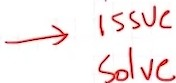 → issue
solve